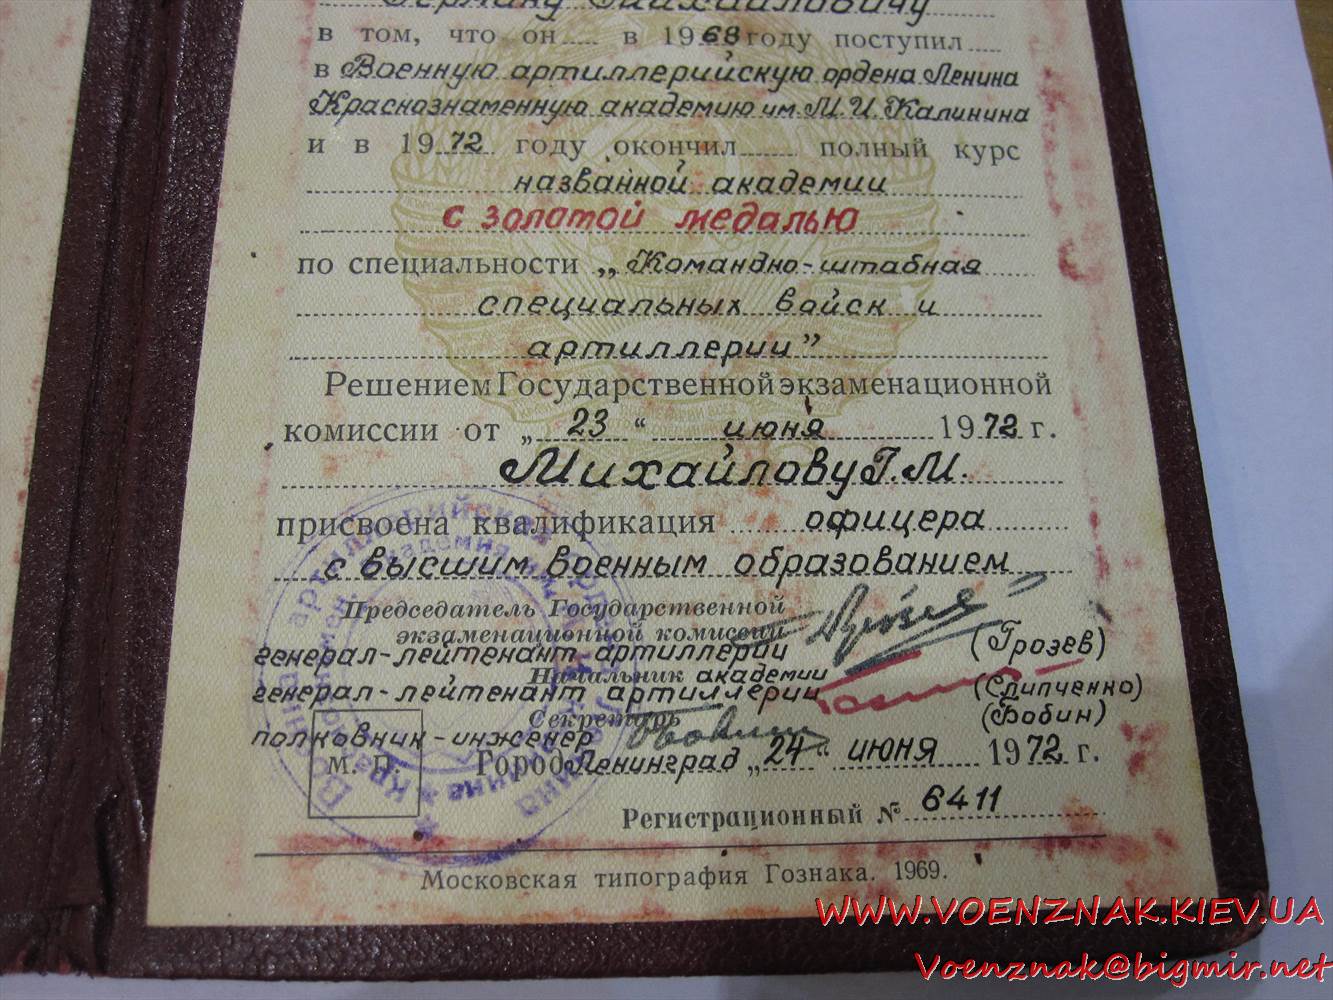 Герману Михайловичу
в том, что он в 1968 году поступил
в Военную артиллерийскую ордена Ленина
Краснознаменную академию им. М. И. Калинина
и в 1972 году окончил полный курс
названной академии
с золотой медалью
по специальности „Командно-штабная
специальных войск и
артиллерии”
Решением Государственной экзаменационной
комиссии от „23“ июня 1972 г.
Михайлову Г. М.
присвоена квалификация офицера
с высшим военным образованием
Председатель Государственной
экзаменационной комиссии
генерал-лейтенант артиллерии (Грозев)
Начальник академии
генерал-лейтенант артиллерии (Слипченко)
Секретарь (Бобин)
полковник-инженер
М. П. Город Ленинград „24“ июня 1972 г.
Регистрационный № 6411
Московская типография Гознака. 1969.
WWW.VOENZNAK.KIEV.UA
Voenznak@bigmir.net